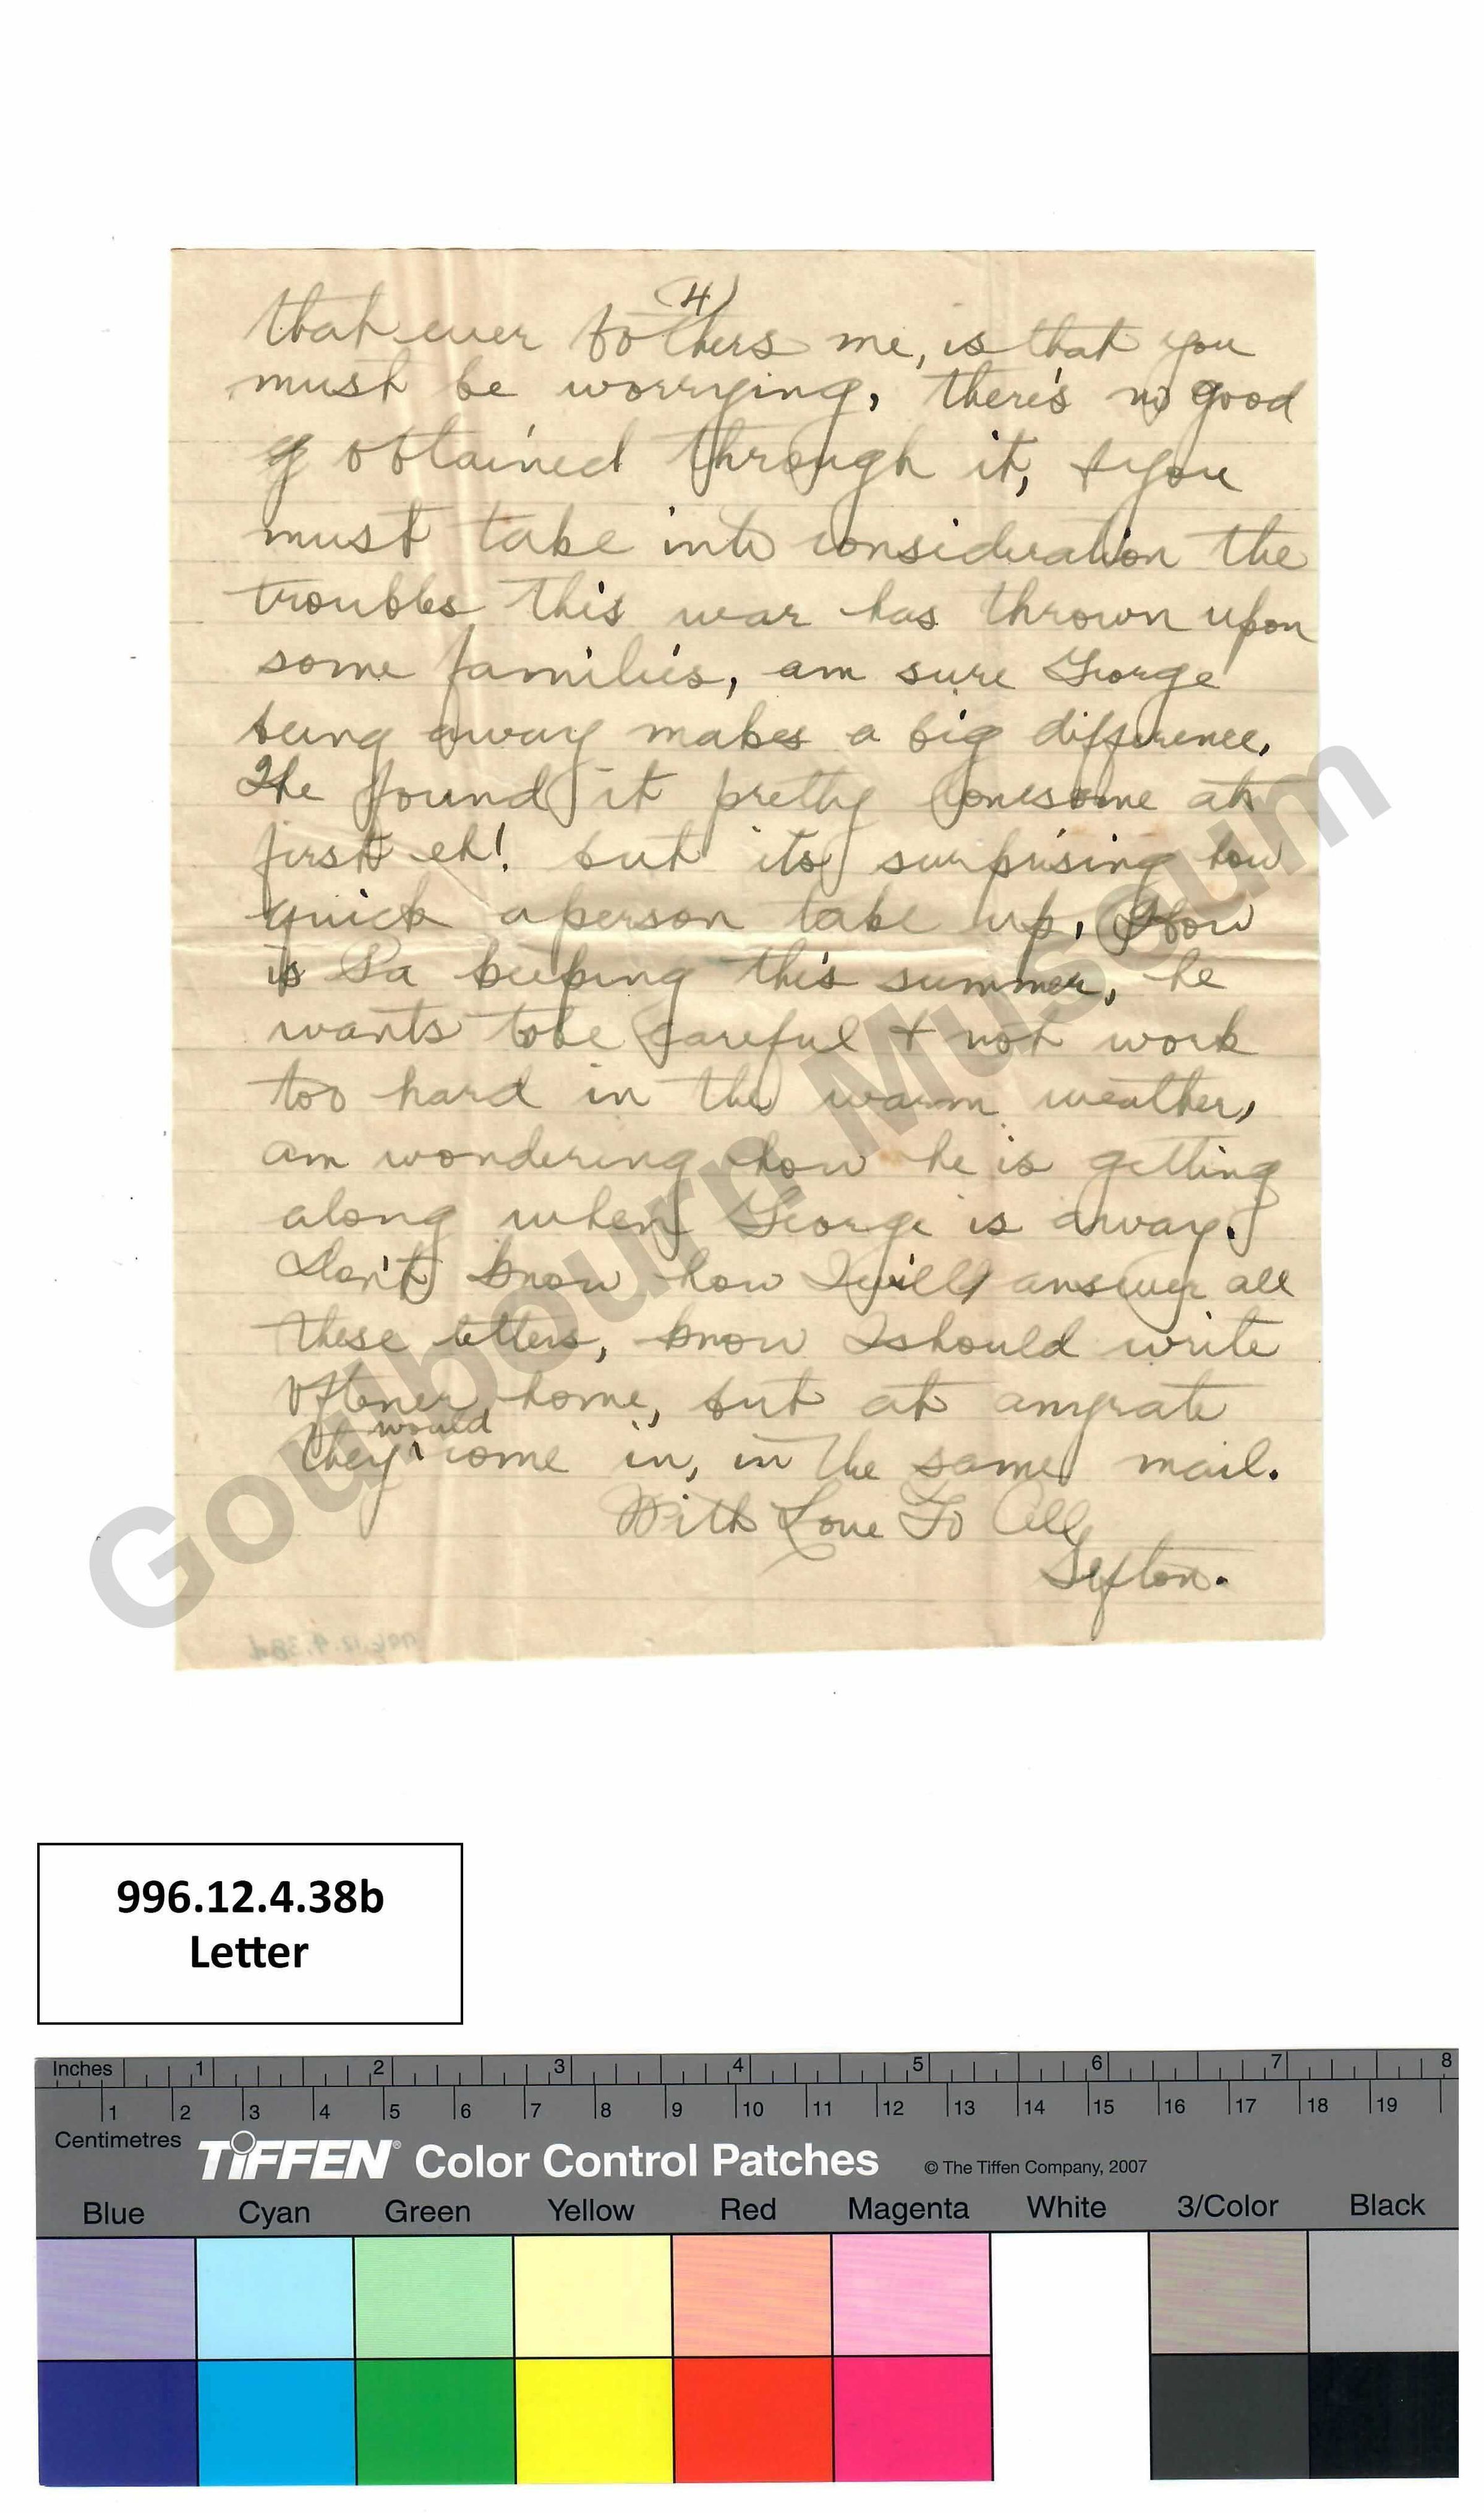 (4)
that ever bothers me, is that you
must be worrying, there's no good
obtained through it, & you
must take into consideration the
troubles this war has thrown upon
some families, am sure George
being away makes a big difference.
He found it pretty lonesome at
first eh! but its surprising how
quick a person take up. How
is Pa keeping this summer, he
wants to be careful & not work
too hard in the warm weather,
am wondering how he is getting
along when George is away.
Don't know how I will answer all
these letters, know I should write
oftener home, but at anyrate
they would come in, in the same mail.
With Love To All
Sefton.
996.12.4.38b
Goulbourn Museum
996.12.4.38b
Letter
Inches 1 2 3 4 5 6 7 8
1 2 3 4 5 6 7 8 9 10 11 12 13 14 15 16 17 18 19
Centimetres
TIFFEN® Color Control Patches © The Tiffen Company, 2007
Blue Cyan Green Yellow Red Magenta White 3/Color Black